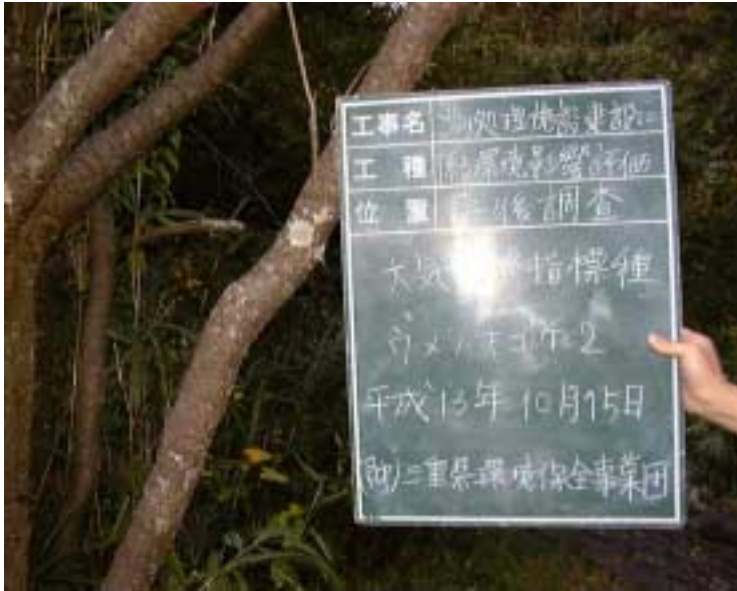 工事名 処理施設建設に
工種 係る環境影響評価
位置 事後調査
大気 指標種
ウメノキゴケ-2
平成13年10月15日
(財)三重県環境保全事業団